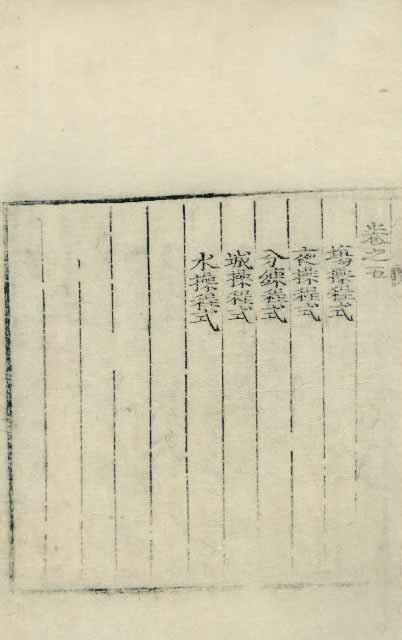 卷之五
塲操程式
夜操程式
分練程式
城操程式
水操程式